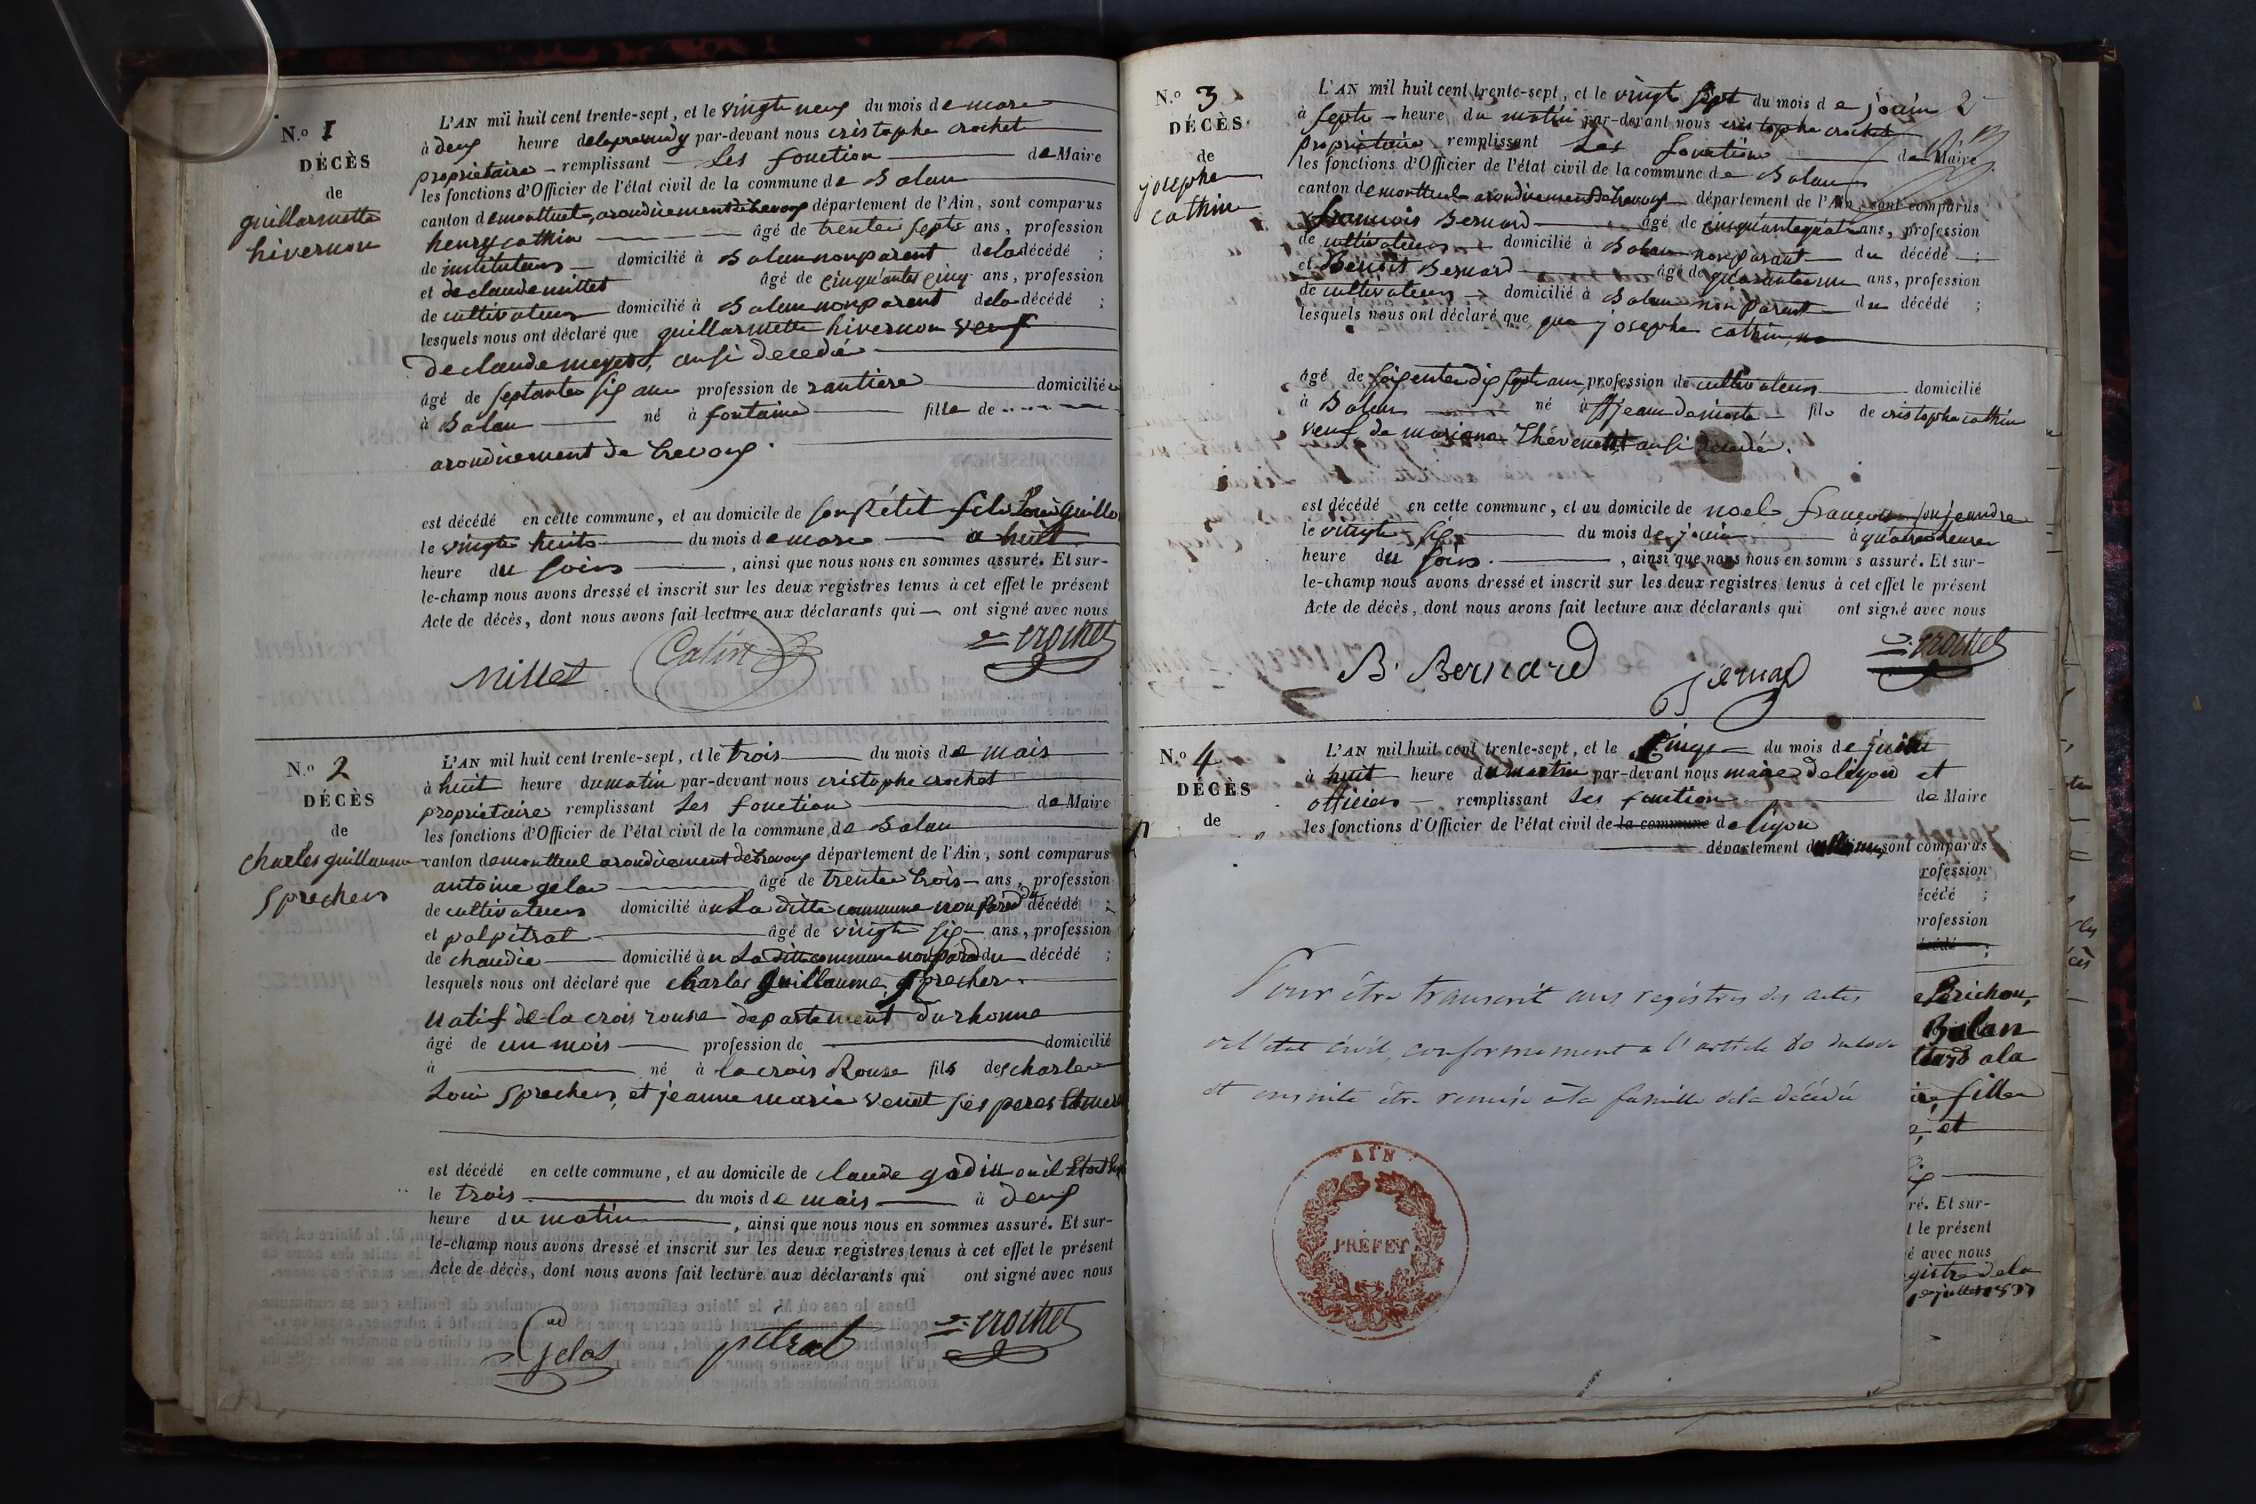 N.o 1
DÉCÈS
de
guillarmette
hivernon
L'AN mil huit cent trente-sept, et le vingte neuf du mois de mars
à deux heure par-devant nous cristophe crochet
propriétaire remplissant Les fonction de Maire
les fonctions d'Officier de l'état civil de la commune de Balan
canton de montluel arondicement de trevoux département de l'Ain, sont comparus
henry cathin âgé de trente septe ans, profession
de instituteur domicilié à Balan non parent dela décédé ;
et de claude millet âgé de cinquante cinq ans, profession
de cultivateur domicilié à Balan non parent dela décédé ;
lesquels nous ont déclaré que guillarmette hivernon veuf
de claude ausi decedé
âgé de septante six ans profession de rantiere domicilié
à Balan né à fontaine fille de
arondicement de trevoux
est décédé en cette commune, et au domicile de son petit fils Loui
le vingte huite du mois de mars a huit
heure du soir, ainsi que nous nous en sommes assuré. Et sur-
le-champ nous avons dressé et inscrit sur les deux registres tenus à cet effet le présent
Acte de décès, dont nous avons fait lecture aux déclarants qui ont signé avec nous
Millet Catin crochet
N.o 2
DÉCÈS
de
charles guillaume
sprecher
L'AN mil huit cent trente-sept, et le trois du mois de mais
à huit heure du matin par-devant nous cristophe crochet
propriétaire remplissant Les fonction de Maire
les fonctions d'Officier de l'état civil de la commune de Balan
canton de montluel arondicement de trevoux département de l'Ain, sont comparus
antoine gelas âgé de trente trois ans, profession
de cultivateur domicilié à La ditte commune non parend du décédé ;
et pitrat âgé de vingte six ans, profession
de domicilié à La ditte commune non parend du décédé ;
lesquels nous ont déclaré que charles guillaume sprecher
natif de la crois rousse departement du rhonne
âgé de un mois profession de domicilié
à né à la crois Rousse fils de charle
Loui sprecher, et jeanne marie venet ses peres et mere
est décédé en cette commune, et au domicile de claude godin
le trois du mois de mais à deux
heure du matin, ainsi que nous nous en sommes assuré. Et sur-
le-champ nous avons dressé et inscrit sur les deux registres tenus à cet effet le présent
Acte de décès, dont nous avons fait lecture aux déclarants qui ont signé avec nous
Gelas pitrat crochet
N.o 3
DÉCÈS
de
josephe
cathin
L'AN mil huit cent trente-sept, et le vingt sept du mois de jouin
à septe heure du matin par-devant nous cristophe crochet
propriétaire remplissant Les fonction de Maire
les fonctions d'Officier de l'état civil de la commune de Balan
canton de montluel arondicement de trevoux département de l'Ain, sont comparus
francois Bernard âgé de cinquante quatre ans, profession
de cultivateur domicilié à Balan non parant du décédé ;
et Benoit Bernard âgé de quarante un ans, profession
de cultivateur domicilié à Balan non parent du décédé ;
lesquels nous ont déclaré que que josephe cathin
âgé de soixente dix sept ans, profession de cultivateur domicilié
à Balan né à St jean de niorte fils de cristophe cathin
veuf de mariane thévenet ausi décédée.
est décédé en cette commune, et au domicile de noel francois son jeandre
le vingte six du mois de jouin à quatre heure
heure du soir, ainsi que nous nous en somm s assuré. Et sur-
le-champ nous avons dressé et inscrit sur les deux registres tenus à cet effet le présent
Acte de décès, dont nous avons fait lecture aux déclarants qui ont signé avec nous
B. Bernard Bernard crochet
N.o 4
DÉCÈS
de
L'AN mil huit cent trente-sept, et le du mois de
à huit heure du matin par-devant nous maire de liyon et
officier remplissant Les fonction de Maire
les fonctions d'Officier de l'état civil de la commune de liyon
département sont comparus
rofession
écédé ;
rofession
écédé ;
Brichon,
Balan
a la
fille
et
ré. Et sur-
t le présent
é avec nous
gistre dela
juillet 1837
Pour être transcrit aux registres des actes
de l'état civil, conformement a l'article 80 du code
et ensuite être remise à la famille dela décédée
AIN
PRÉFET